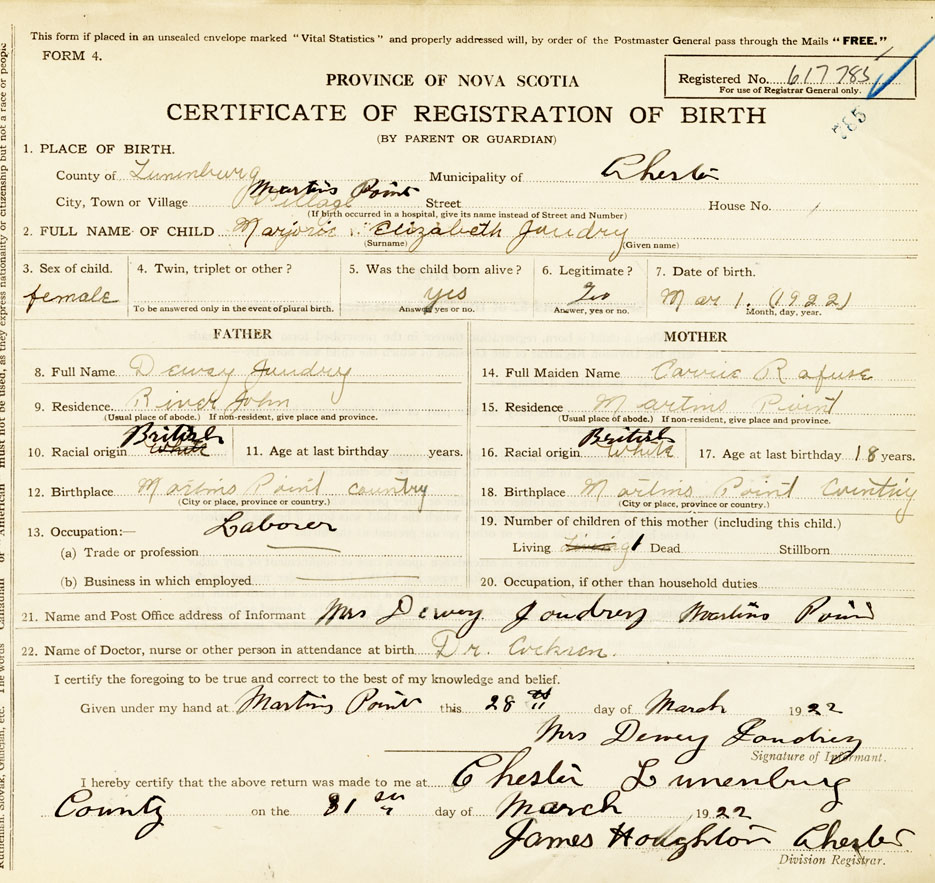 This form if placed in an unsealed envelope marked "Vital Statistics" and properly addressed will, by order of the Postmaster General pass through the Mails "FREE."
FORM 4.
Registered No. 617785
For use of Registrar General only.
785
PROVINCE OF NOVA SCOTIA
CERTIFICATE OF REGISTRATION OF BIRTH
(BY PARENT OR GUARDIAN)
1. PLACE OF BIRTH.
County of Lunenburg Municipality of Chester
City, Town or Village Martins Point Village Street House No.
(If birth occurred in a hospital, give its name instead of Street and Number)
2. FULL NAME OF CHILD Marjorie Elizabeth Joudrey
(Surname) (Given name)
3. Sex of child. 4. Twin, triplet or other? 5. Was the child born alive? 6. Legitimate? 7. Date of birth.
female yes Yes Mar 1. (1922)
To be answered only in the event of plural birth. Answer, yes or no. Answer, yes or no. Month, day, year.
FATHER MOTHER
8. Full Name Dewey Joudrey 14. Full Maiden Name Carrie Rafuse
9. Residence River John 15. Residence Martins Point
(Usual place of abode.) If non-resident, give place and province. (Usual place of abode.) If non-resident, give place and province.
British British
10. Racial origin White 11. Age at last birthday years. 16. Racial origin White 17. Age at last birthday 18 years.
12. Birthplace Martins Point country 18. Birthplace Martins Point Country
(City or place, province or country.) (City or place, province or country.)
13. Occupation:— Laborer 19. Number of children of this mother (including this child.)
(a) Trade or profession Living 1 Dead Stillborn
(b) Business in which employed 20. Occupation, if other than household duties
21. Name and Post Office address of Informant Mrs Dewey Joudrey Martins Point
22. Name of Doctor, nurse or other person in attendance at birth Dr. Cockren.
I certify the foregoing to be true and correct to the best of my knowledge and belief.
Given under my hand at Martins Point this 28th day of March 1922
Mrs Dewey Joudrey
Signature of Informant.
I hereby certify that the above return was made to me at Chester Lunenburg
County on the 31 day of March 1922
James Houghton Chester
Division Registrar.
must not be used, as they express nationality or citizenship but not a race or people
The words Canadian or American
Ruthenian, Slovak, etc.